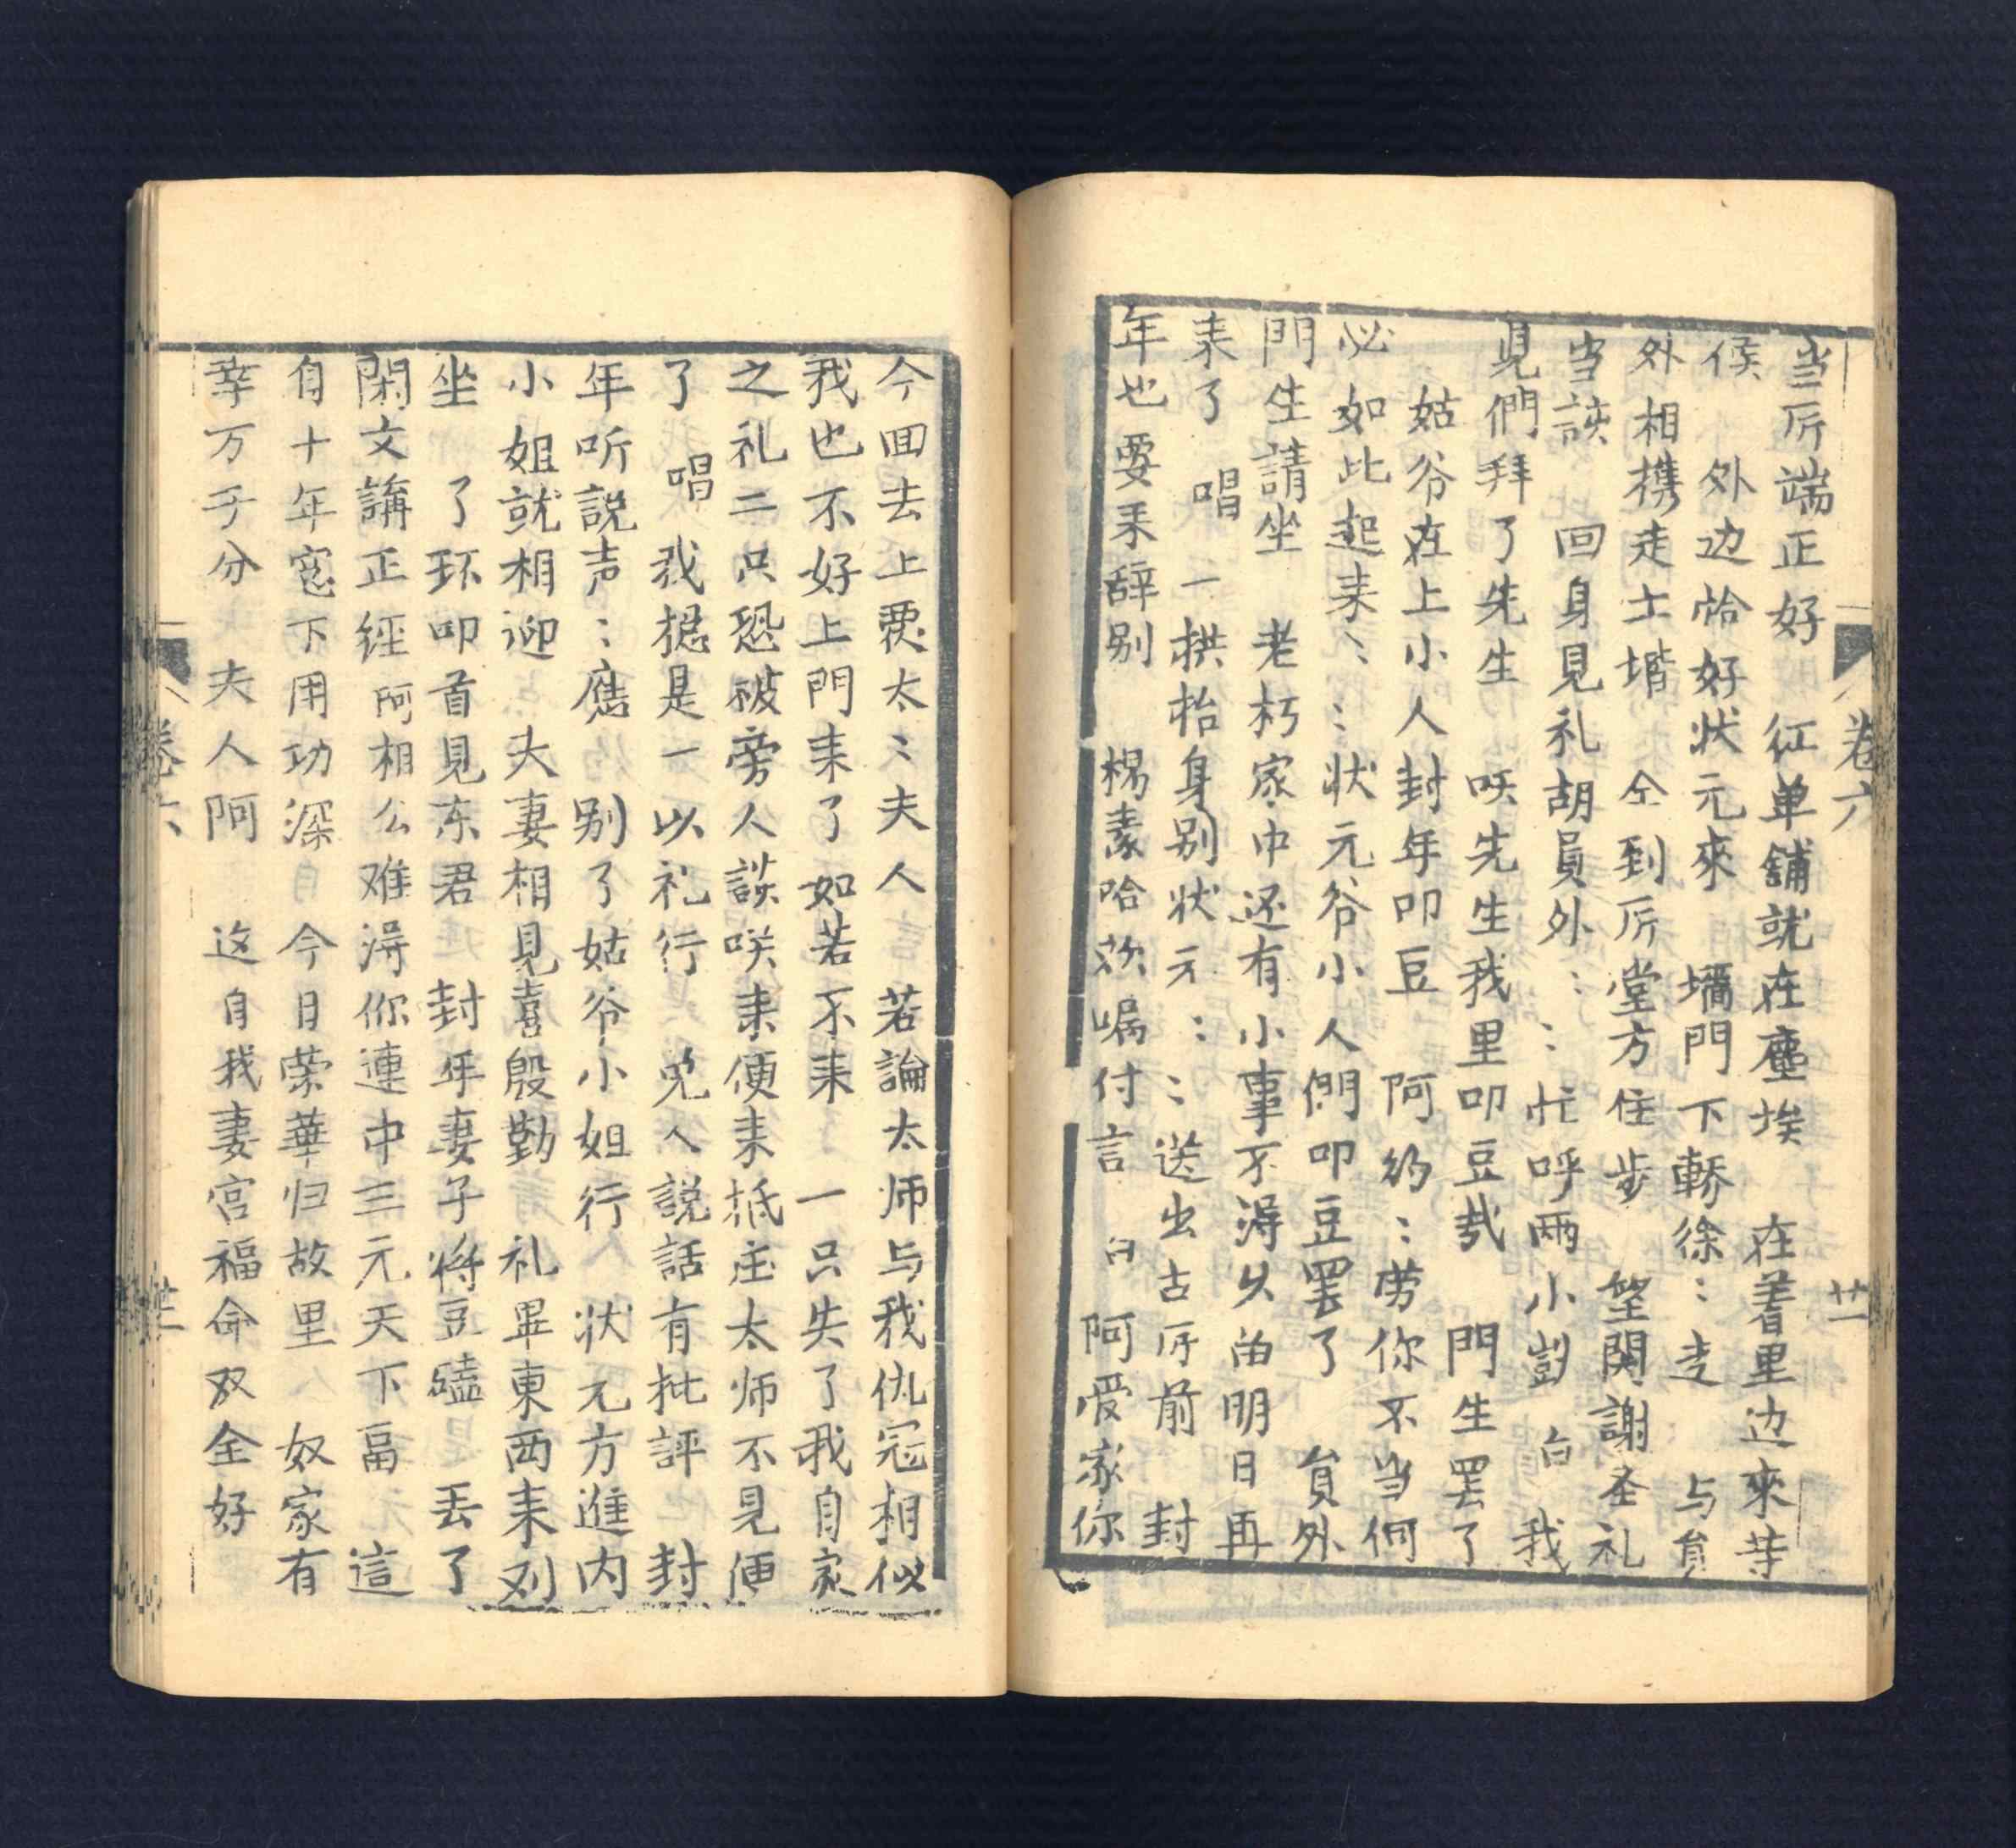 卷六 廿一
当厅端正好 红单舖就在塵埃 在着里边來等
候 外边恰好状元來 墙門下轎徐〻走 与負
外相携走土堦 仝到厅堂方住步 望関謝圣礼
当談 回身見礼胡員外〻〻忙呼两小彭 白 我
見們拜了先生 咲先生我里叩豆哉 門生罢了
姑爷在上小人封年叩豆 阿約〻劳你不当何
必如此起耒〻〻状元爷小人們叩豆罢了 負外
門生請坐 老朽家中还有小事不淂久畄明日再
耒了 唱 一拱抬身别状元〻〻送出古厅前 封
年也要耒辞别 楊素哈欢嘱付言 白 阿爱家你
今回去上覆太〻夫人 若論太师与我仇冠相似
我也不好上門耒了如若不耒 一只失了我自家
之礼二只恐被旁人談咲耒便耒抵庄太师不見便
了 唱 我揔是一以礼行 免人説話有批評 封
年听説声〻應 别了姑爷小姐行 状元方進内
小姐就相迎 夫妻相見喜殷勤 礼畢東西耒列
坐 了环叩首見东君 封年妻子将豆磕 丢了
閑文講正经 阿相公难淂你連中三元天下畐 這
自十年窓下用功深 今日荣華归故里 奴家有
幸万千分 夫人阿 这自我妻宫福命双全好
卷六 廿二